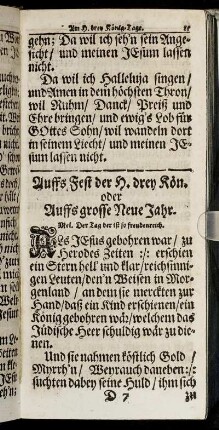 Am H. drey König-Tage. 85
gehn; Da wil ich seh'n sein Ange-
sicht/ und meinen JEsum lassen
nicht.
Da wil ich Halleluja singen/
und Amen in dem höchsten Thron/
wil Ruhm/ Danck/ Preiß und
Ehre bringen/ und ewig's Lob für
GOttes Sohn/ wil wandeln dort
in seinem Liecht/ und meinen JE-
sum lassen nicht.
Auffs Fest der H. drey Kön.
oder
Auffs grosse Neue Jahr.
Mel. Der Tag der ist so freudenreich.
ALs JEsus gebohren war/ zu
Herodes Zeiten :/: erschien
ein Stern hell und klar/ reichsinni-
gen Leuten/ den'n Weisen in Mor-
genland/ an dem sie merckten zur
Hand/ daß ein Kind erschienen/ ein
König gebohren wär/ welchem das
Jüdische Heer schuldig wär zu die-
nen.
Und sie nahmen köstlich Gold/
Myrrh'n/ Weyrauch daneben :/:
suchten dabey seine Huld/ ihm sich
D 7